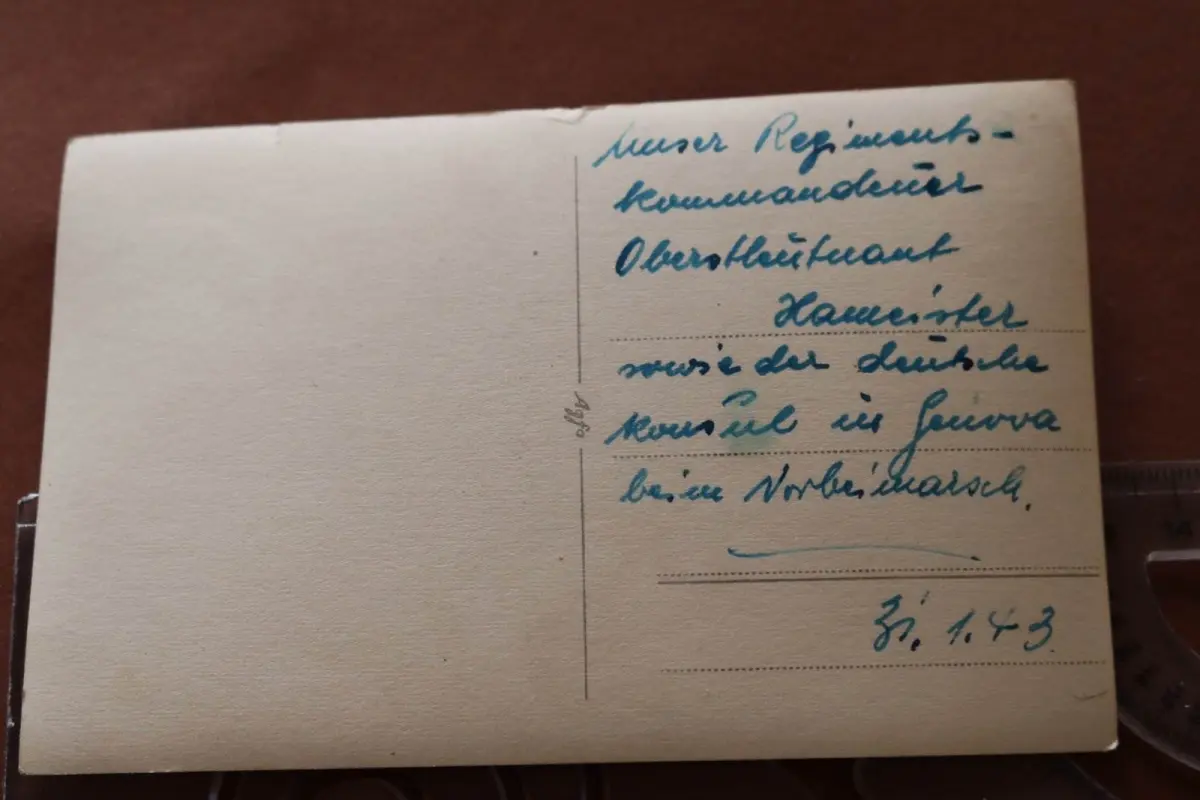 Unser Regiments-
kommandeur
Oberstleutnant
Hameister
sowie der deutsche
Konsul in Genova
beim Vorbeimarsch.
Agfa
31.1.43
14